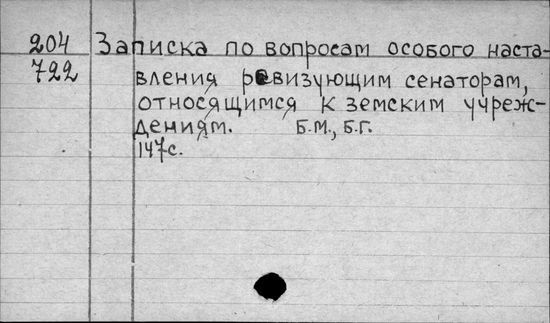 204 Записка по вопросам особого наста-
722 вления ревизующим сенаторам,
относящимся к земским учреж-
дениям. Б.М., Б.Г.
147с.